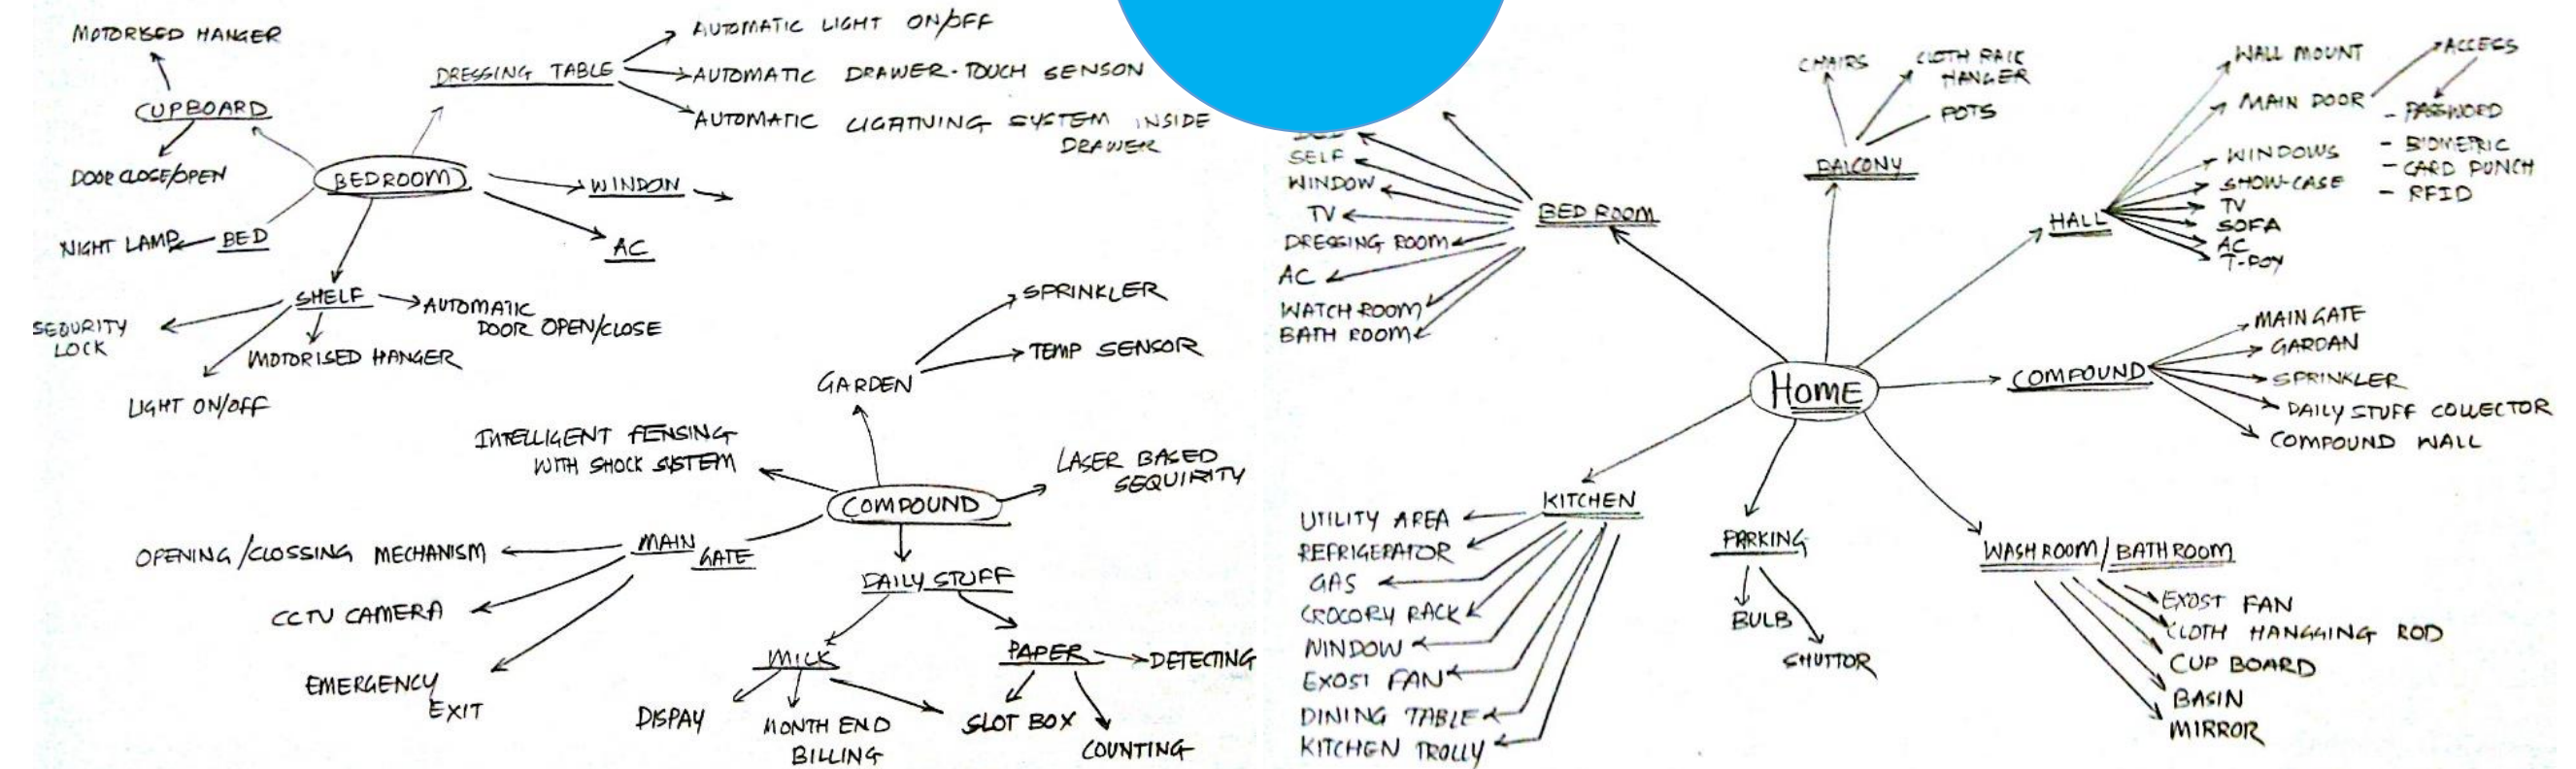 MOTORISED HANGER
CUPBOARD
DOOR CLOSE/OPEN
DRESSING TABLE
AUTOMATIC LIGHT ON/OFF
AUTOMATIC DRAWER-TOUCH SENSON
AUTOMATIC LIGATNING SYSTEM INSIDE
DRAWER
BEDROOM
WINDOW
AC
NIGHT LAMP
BED
SHELF
SEQURITY
LOCK
AUTOMATIC
DOOR OPEN/CLOSE
MOTORISED HANGER
LIGHT ON/OFF
SPRINKLER
TEMP SENSOR
GARDEN
INTELLIGENT FENSING
WITH SHOCK SYSTEM
LASER BASED
SEQUIRITY
COMPOUND
MAIN
GATE
OPENING/CLOSSING MECHANISM
CCTV CAMERA
EMERGENCY
EXIT
DAILY STUFF
MILK
PAPER
DETECTING
DISPAY
MONTH END
BILLING
SLOT BOX
COUNTING
SELF
WINDOW
TV
DRESSING ROOM
AC
WATCH ROOM
BATH ROOM
BED ROOM
CHAIRS
CLOTH RACK
HANGER
POTS
BALCONY
HALL
WALL MOUNT
MAIN DOOR
ACCESS
- PASSWORD
- BIOMETRIC
- CARD PUNCH
- RFID
WINDOWS
SHOW-CASE
TV
SOFA
AC
T-POY
HOME
COMPOUND
MAIN GATE
GARDAN
SPRINKLER
DAILY STUFF COLLECTOR
COMPOUND WALL
KITCHEN
UTILITY AREA
REFRIGERATOR
GAS
CROCORY RACK
WINDOW
EXOST FAN
DINING TABLE
KITCHEN TROLLY
PARKING
BULB
SHUTTOR
WASHROOM/BATHROOM
EXOST FAN
CLOTH HANGGING ROD
CUP BOARD
BASIN
MIRROR